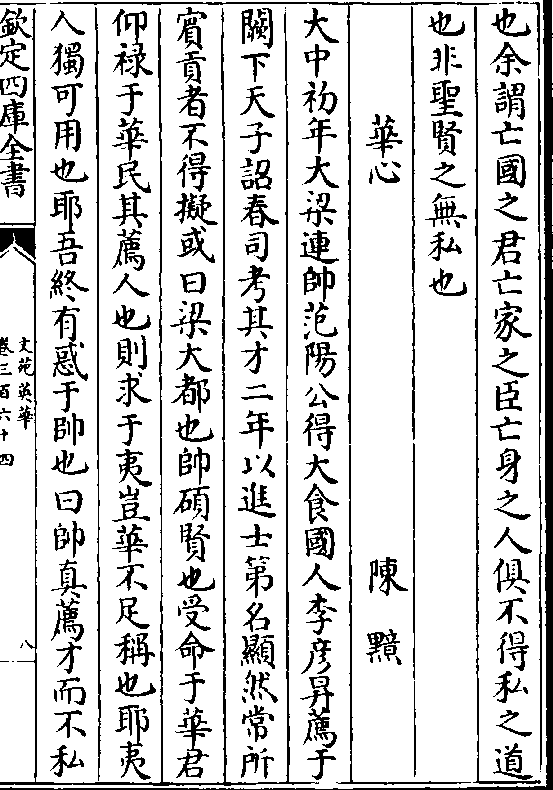 也余謂亡國之君亡家之臣亡身之人俱不得私之道
也非聖賢之無私也
華心 陳黯
大中初年大梁連帥范陽公得大食國人李彦昇薦于
闕下天子詔春司考其才二年以進士第名顯然常所
賔貢者不得擬或曰梁大都也帥碩賢也受命于華君
仰禄于華民其薦人也則求于夷豈華不足稱也耶夷
人獨可用也耶吾終有惑于帥也曰帥真薦才而不私
欽定四庫全書
文苑英華
卷三百六十四
八